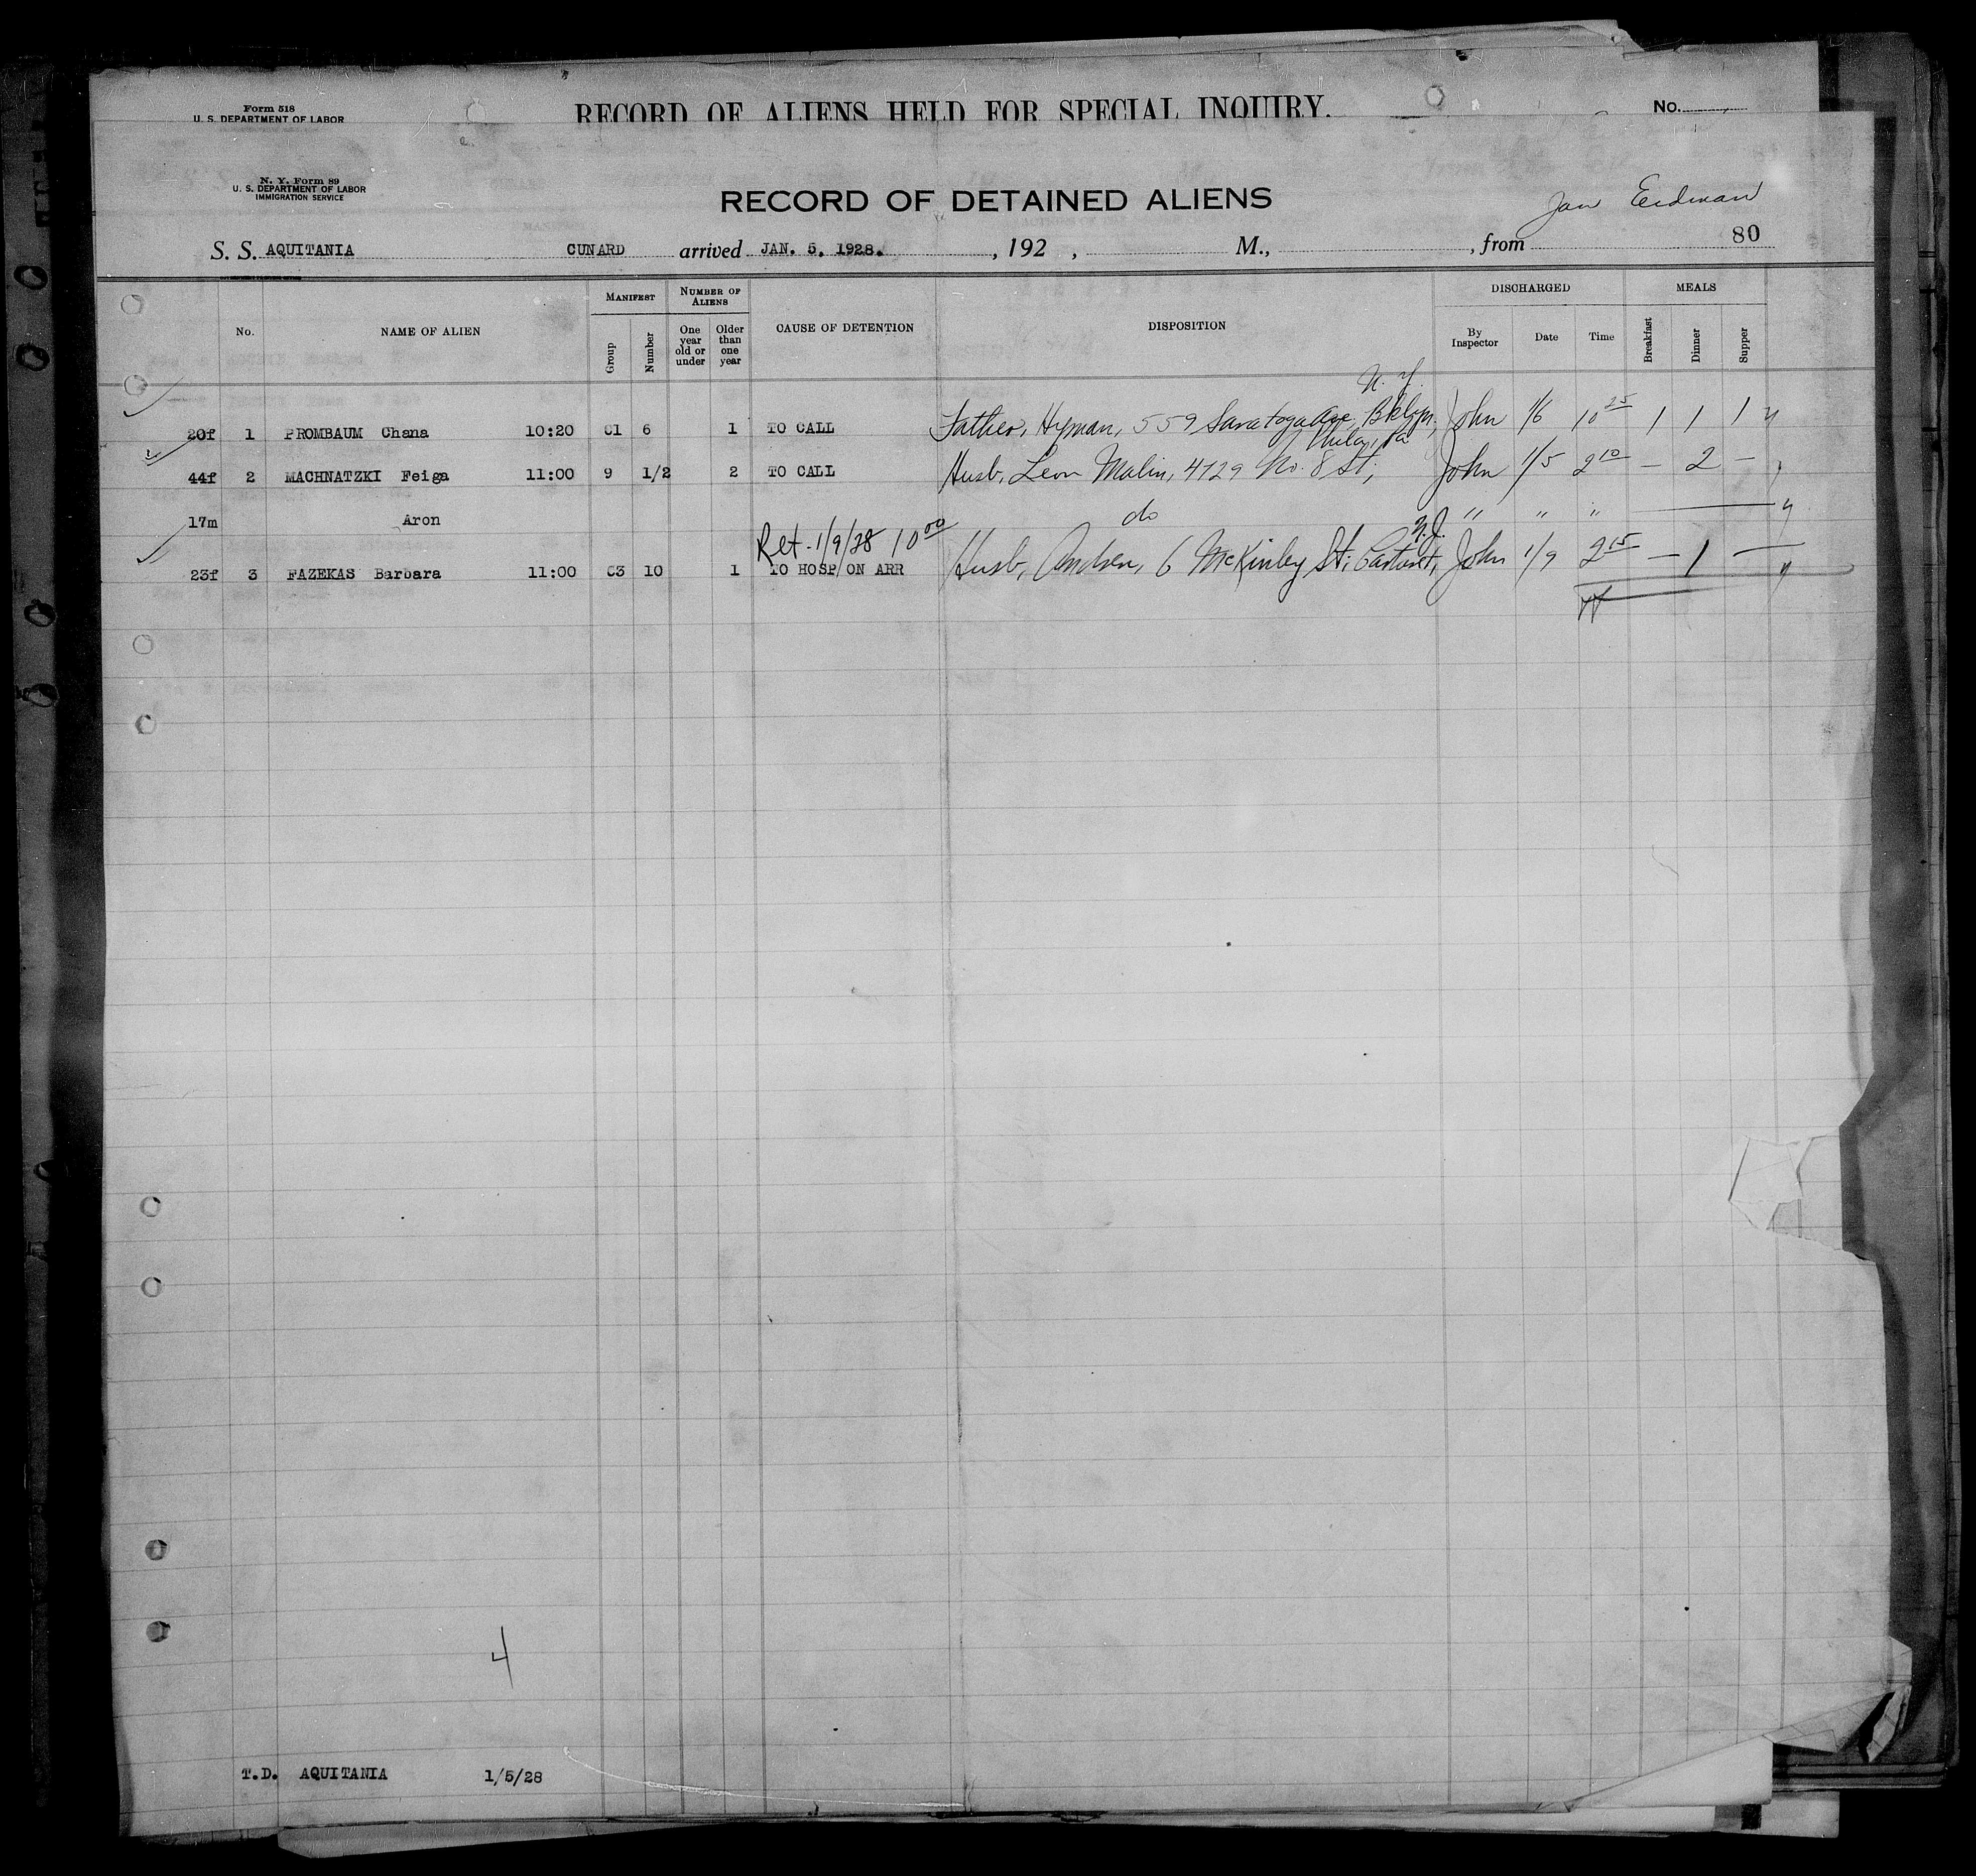 Form 518
U. S. DEPARTMENT OF LABOR
RECORD OF ALIENS HELD FOR SPECIAL INQUIRY.
No.
N. Y. Form 89
U. S. DEPARTMENT OF LABOR
IMMIGRATION SERVICE
RECORD OF DETAINED ALIENS
Jan Erdman
S. S. AQUITANIA CUNARD arrived JAN. 5, 1928. , 192 , M., , from 80
No. NAME OF ALIEN MANIFEST Group Number NUMBER OF ALIENS One year old or under Older than one year CAUSE OF DETENTION DISPOSITION DISCHARGED By Inspector Date Time MEALS Breakfast Dinner Supper
N. Y.
20f 1 PROMBAUM Chana 10:20 61 6 1 TO CALL Father, Hyman, 559 Saratoga Ave, Bklyn, John 1/6 10 25 1 1 1
Phila, Pa
44f 2 MACHNATZKI Feiga 11:00 9 1/2 2 TO CALL Husb, Leon Malin, 4129 No. 8 St, John 1/5 2 10 — 2 —
17m Aron do " " "
Ret - 1/9/28 10 00 N.J.
23f 3 FAZEKAS Barbara 11:00 63 10 1 TO HOSP ON ARR Husb, Andrew, 6 McKinley St. Carteret, John 1/9 2 15 — 1 —
4
T.D. AQUITANIA 1/5/28